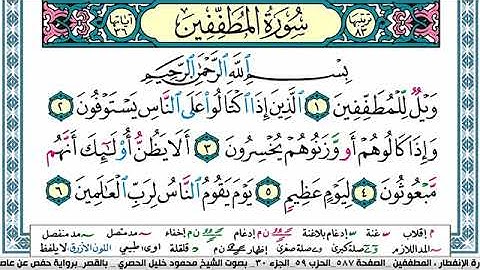 ترتيبها ٨٣
سورة المطففين
آياتها ٣٦
بسم الله الرحمن الرحيم
وَيْلٌ لِّلْمُطَفِّفِينَ ١ الَّذِينَ إِذَا اكْتَالُوا عَلَى النَّاسِ يَسْتَوْفُونَ ٢
وَإِذَا كَالُوهُمْ أَو وَّزَنُوهُمْ يُخْسِرُونَ ٣ أَلَا يَظُنُّ أُولَٰئِكَ أَنَّهُم
مَّبْعُوثُونَ ٤ لِيَوْمٍ عَظِيمٍ ٥ يَوْمَ يَقُومُ النَّاسُ لِرَبِّ الْعَالَمِينَ ٦
إقلاب غنة إدغام بلاغنة إدغام إخفاء مد متصل مد منفصل
المد اللازم صلة كبرى صلة صغرى إظهار قلقلة طبيعي اللون الأزرق لايلفظ
رة الإنفطار ، المطففين _ الصفحة ٥٨٧ _ الحزب ٥٩ _ الجزء ٣٠ _ بصوت الشيخ محمود خليل الحصري _ بالقصر _ برواية حفص عن عاص